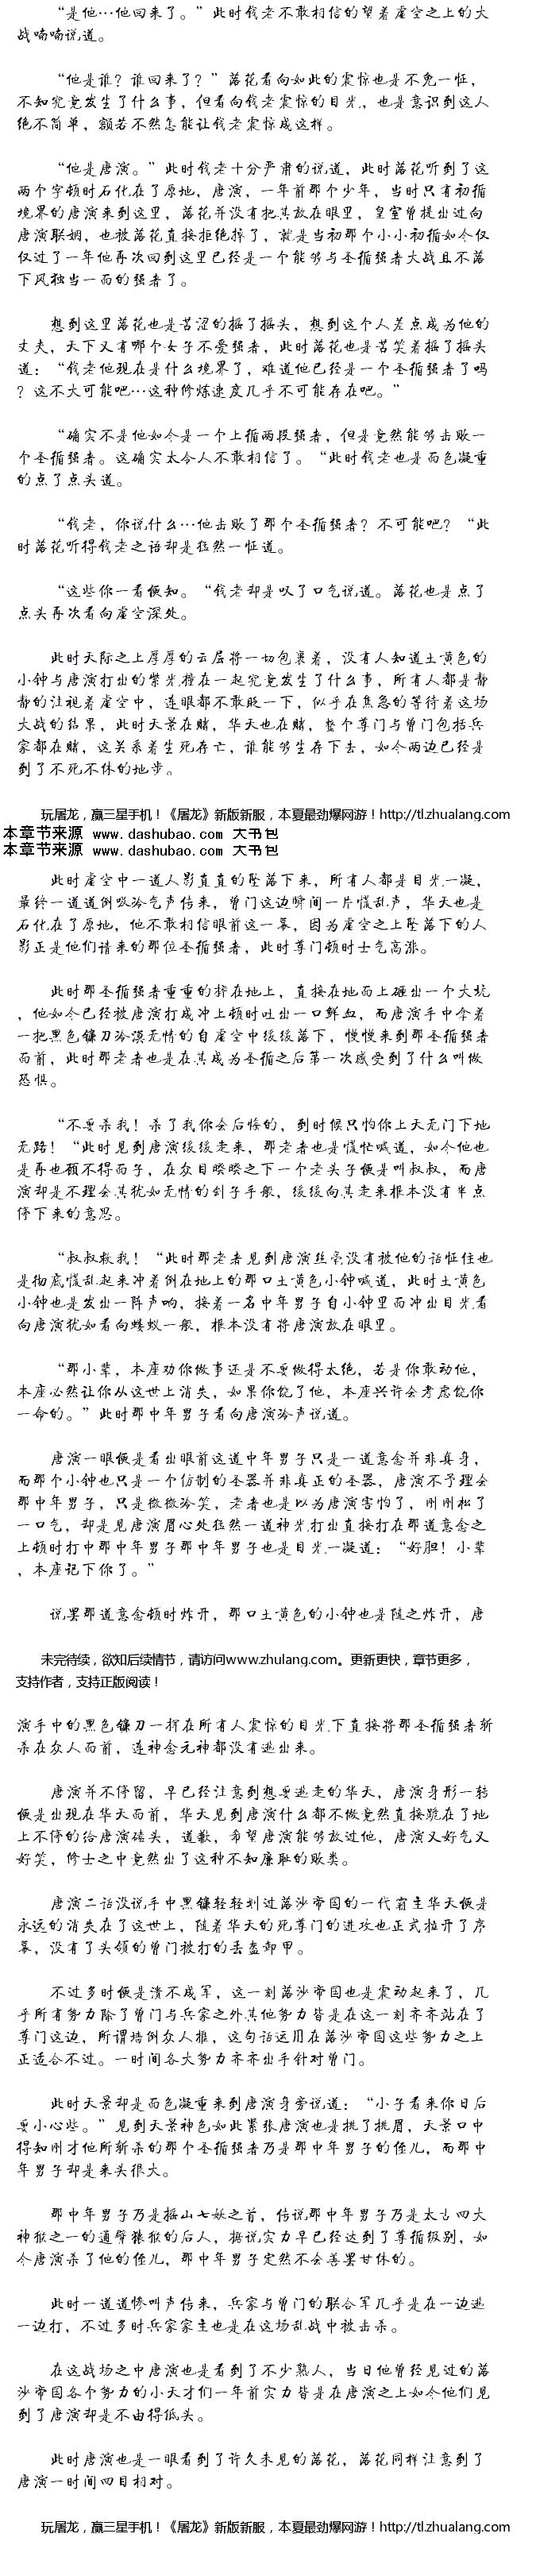 “是他…他回来了。”此时钱老不敢相信的望着虚空之上的大
战喃喃说道。
“他是谁？谁回来了？”落花看向如此的震惊也是不免一怔，
不知究竟发生了什么事，但看向钱老震惊的目光，也是意识到这人
绝不简单，额若不然怎能让钱老震惊成这样。
“他是唐演。”此时钱老十分严肃的说道，此时落花听到了这
两个字顿时石化在了原地，唐演，一年前那个少年，当时只有初循
境界的唐演来到这里，落花并没有把其放在眼里，皇室曾提出过向
唐演联姻，也被落花直接拒绝掉了，就是当初那个小小初循如今仅
仅过了一年他再次回到这里已经是一个能够与圣循强者大战且不落
下风独当一面的强者了。
想到这里落花也是苦涩的摇了摇头，想到这个人差点成为他的
丈夫，天下又有哪个女子不爱强者，此时落花也是苦笑着摇了摇头
道：“钱老他现在是什么境界了，难道他已经是一个圣循强者了吗
？这不大可能吧…这种修炼速度几乎不可能存在吧。”
“确实不是他如今是一个上循两段强者，但是竟然能够击败一
个圣循强者。这确实太令人不敢相信了。“此时钱老也是面色凝重
的点了点头道。
“钱老，你说什么…他击败了那个圣循强者？不可能吧？“此
时落花听得钱老之语却是猛然一怔道。
“这些你一看便知。“钱老却是叹了口气说道。落花也是点了
点头再次看向虚空深处。
此时天际之上厚厚的云层将一切包裹着，没有人知道土黄色的
小钟与唐演打出的紫光撞在一起究竟发生了什么事，所有人都是静
静的注视着虚空中，连眼都不敢眨一下，似乎在焦急的等待着这场
大战的结果，此时天景在赌，华天也在赌，整个尊门与曾门包括兵
家都在赌，这关系着生死存亡，谁能够生存下去，如今两边已经是
到了不死不休的地步。
玩屠龙，赢三星手机！《屠龙》新版新服，本夏最劲爆网游！http://tl.zhualang.com
本章节来源 www.dashubao.com 大书包
本章节来源 www.dashubao.com 大书包
此时虚空中一道人影直直的坠落下来，所有人都是目光一凝，
最终一道道倒吸冷气声传来，曾门这边瞬间一片慌乱声，华天也是
石化在了原地，他不敢相信眼前这一幕，因为虚空之上坠落下的人
影正是他们请来的那位圣循强者，此时尊门顿时士气高涨。
此时那圣循强者重重的摔在地上，直接在地面上砸出一个大坑
，他如今已经被唐演打成冲上顿时吐出一口鲜血，而唐演手中拿着
一把黑色镰刀冷漠无情的自虚空中缓缓落下，慢慢来到那圣循强者
面前，此时那老者也是在其成为圣循之后第一次感受到了什么叫做
恐惧。
“不要杀我！杀了我你会后悔的，到时候只怕你上天无门下地
无路！“此时见到唐演缓缓走来，那老者也是慌忙喊道，如今他也
是再也顾不得面子，在众目睽睽之下一个老头子便是叫叔叔，而唐
演却是不理会其犹如无情的刽子手般，缓缓向其走来根本没有半点
停下来的意思。
“叔叔救我！“此时那老者见到唐演丝毫没有被他的话怔住也
是彻底慌乱起来冲着倒在地上的那口土黄色小钟喊道，此时土黄色
小钟也是发出一阵声响，接着一名中年男子自小钟里面冲出目光看
向唐演犹如看向蝼蚁一般，根本没有将唐演放在眼里。
“那小辈，本座劝你做事还是不要做得太绝，若是你敢动他，
本座必然让你从这世上消失，如果你饶了他，本座兴许会考虑饶你
一命的。”此时那中年男子看向唐演冷声说道。
唐演一眼便是看出眼前这道中年男子只是一道意念并非真身，
而那个小钟也只是一个仿制的圣器并非真正的圣器，唐演不予理会
那中年男子，只是微微冷笑，老者也是以为唐演害怕了，刚刚松了
一口气，却是见唐演眉心处猛然一道神光打出直接打在那道意念之
上顿时打中那中年男子那中年男子也是目光一凝道：“好胆！小辈
，本座记下你了。”
说罢那道意念顿时炸开，那口土黄色的小钟也是随之炸开，唐
未完待续，欲知后续情节，请访问www.zhulang.com。更新更快，章节更多，
支持作者，支持正版阅读！
演手中的黑色镰刀一挥在所有人震惊的目光下直接将那圣循强者斩
杀在众人面前，连神念元神都没有逃出来。
唐演并不停留，早已经注意到想要逃走的华天，唐演身形一转
便是出现在华天面前，华天见到唐演什么都不做竟然直接跪在了地
上不停的给唐演磕头，道歉，希望唐演能够放过他，唐演又好气又
好笑，修士之中竟然出了这种不知廉耻的败类。
唐演二话没说手中黑镰轻轻划过落沙帝国的一代霸主华天便是
永远的消失在了这世上，随着华天的死尊门的进攻也正式拉开了序
幕，没有了头领的曾门被打的丢盔卸甲。
不过多时便是溃不成军，这一刻落沙帝国也是震动起来了，几
乎所有势力除了曾门与兵家之外其他势力皆是在这一刻齐齐站在了
尊门这边，所谓墙倒众人推，这句话运用在落沙帝国这些势力之上
正适合不过。一时间各大势力齐齐出手针对曾门。
此时天景却是面色凝重来到唐演身旁说道：“小子看来你日后
要小心些。”见到天景神色如此紧张唐演也是挑了挑眉，天景口中
得知刚才他所斩杀的那个圣循强者乃是那中年男子的侄儿，而那中
年男子却是来头很大。
那中年男子乃是摇山七妖之首，传说那中年男子乃是太古四大
神猴之一的通臂猿猴的后人，据说实力早已经达到了尊循级别，如
今唐演杀了他的侄儿，那中年男子定然不会善罢甘休的。
此时一道道惨叫声传来，兵家与曾门的联合军几乎是在一边逃
一边打，不过多时兵家家主也是在这场乱战中被击杀。
在这战场之中唐演也是看到了不少熟人，当日他曾经见过的落
沙帝国各个势力的小天才们一年前实力皆是在唐演之上如今他们见
到了唐演却是不由得低头。
此时唐演也是一眼看到了许久未见的落花，落花同样注意到了
唐演一时间四目相对。
玩屠龙，赢三星手机！《屠龙》新版新服，本夏最劲爆网游！http://tl.zhualang.com